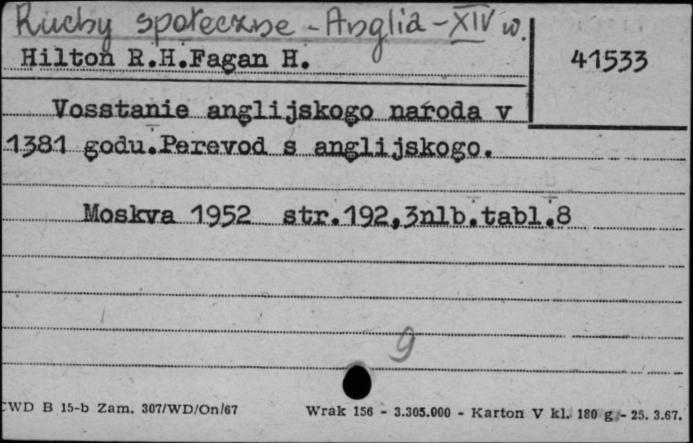 Ruchy społeczne - Anglia - XIV w.
Hilton R.H.Fagan H.
41533
Vosstanie anglijskogo naroda v
1381 godu.Perevod s anglijskogo.
Moskva 1952 str.192,3nlb.tabl.8
9
CWD B 15-b Zam. 307/WD/On/67
Wrak 156 - 3.305.000 - Karton V kl. 180 g - 25. 3.67.